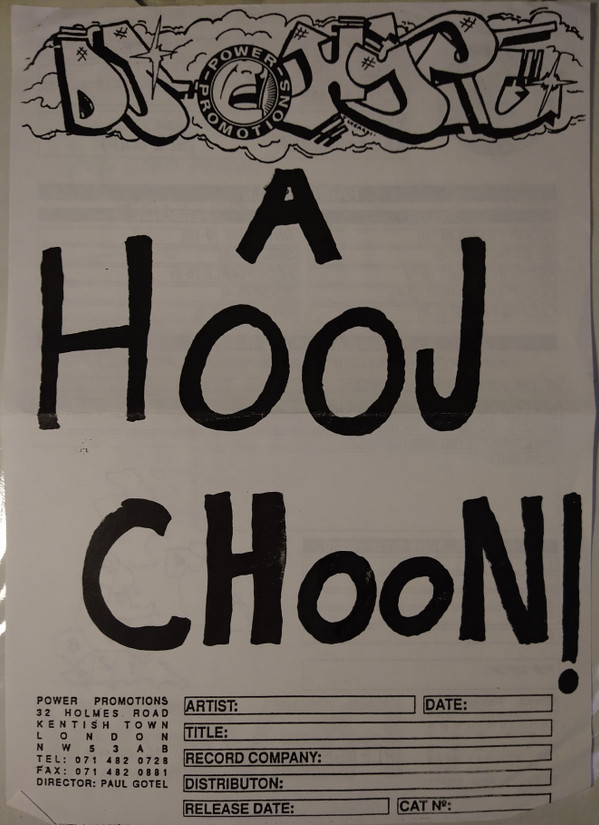 DJ HYPE
POWER PROMOTIONS
A
HOOJ
CHOON!
POWER PROMOTIONS
32 HOLMES ROAD
KENTISH TOWN
LONDON
NW5 3AB
TEL: 071 482 0728
FAX: 071 482 0881
DIRECTOR: PAUL GOTEL
ARTIST: DATE:
TITLE:
RECORD COMPANY:
DISTRIBUTON:
RELEASE DATE: CAT Nº: